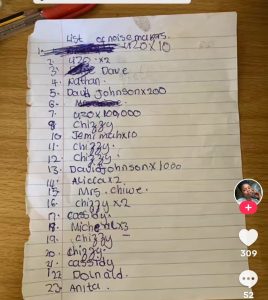 List of noise makers.
1. 420 x 10
2. 420 x2
3. Dave
4. Nathan.
5. David Johnson x 200
6.
7. 420 x 100,000
8 Chizzy
10 Jemimah x 10
11. Chizzy.
12. Chizzy.
13. David Johnson x 1000
14. Alicia x 2
15. Mrs. Chiwe.
16 Chizzy x 2
17. Cassidy.
18. Micheal x 3
19. Chizzy
20. Chizzy.
21. Cassidy
22 Donald.
23. Anita.
309
52